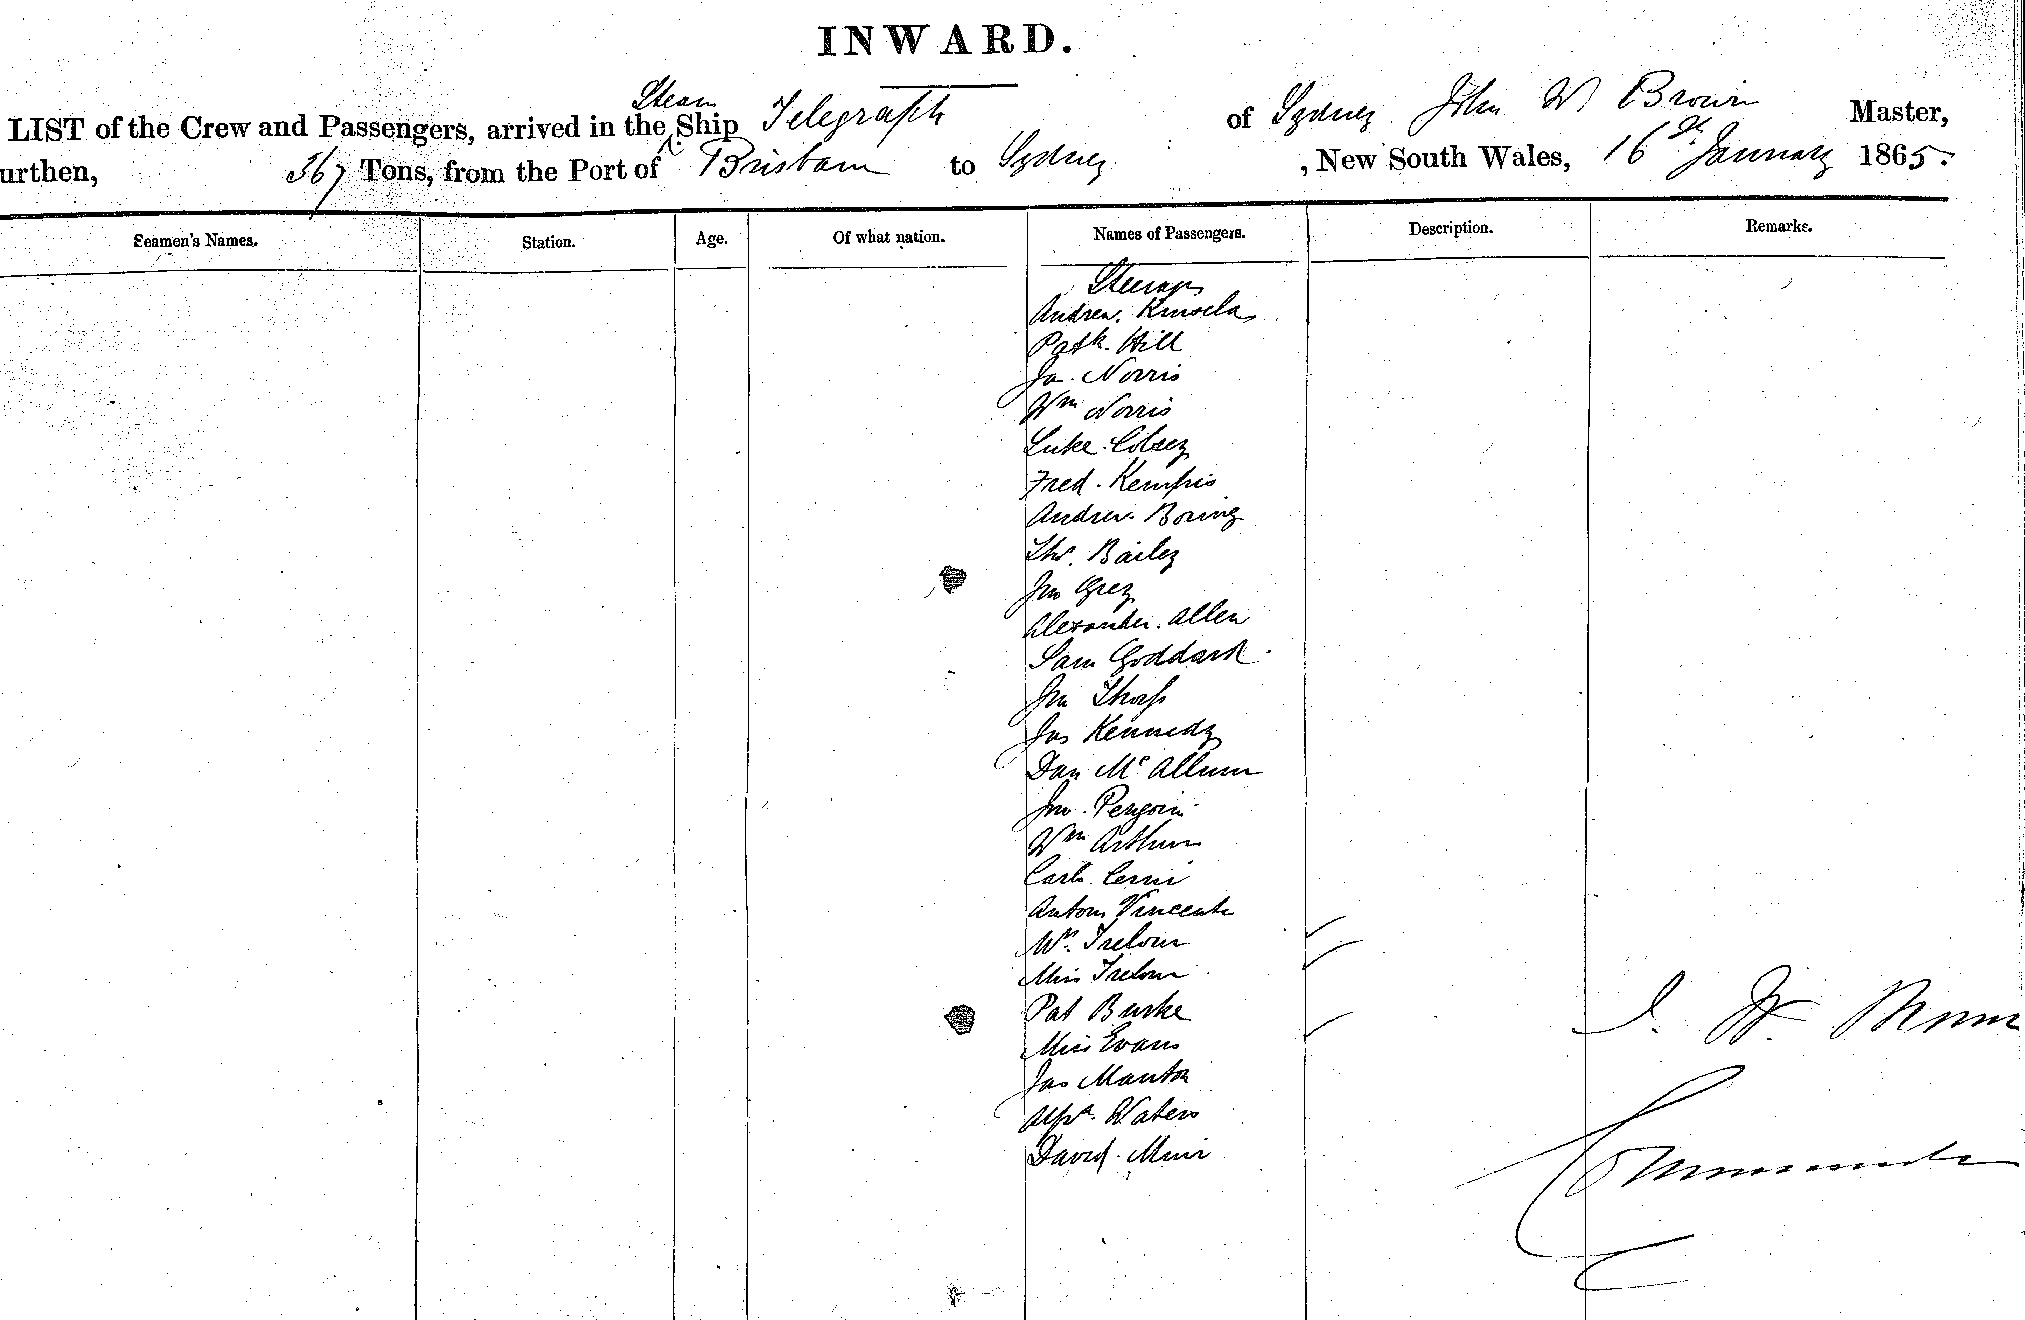 INWARD.
Steam
LIST of the Crew and Passengers, arrived in the Ship Telegraph of Sydney John W Brown Master,
urthen, 367 Tons, from the Port of Brisbane to Sydney, New South Wales, 16th January 1865.
Seamen's Names. Station. Age. Of what nation. Names of Passengers. Description. Remarks.
Steerage
Andrew Kinsela
Patk. Hill
Jas. Norris
Wm Norris
Luke
Fred. Kempis
Andrew Boring
Thos. Bailey
Jno Grey
Alexander Allen
Sam Goddard
Jno Thorp
Jas Kennedy
Dan McAllum
Jno
Wm Arthur
Carlo Cerini
Antom Vincente
Mrs. Treloar
Miss Treloar
Pat Burke
Miss Evans
Jas Manton
Alfd. Waters
David Muir
J. W. Brown
Commander